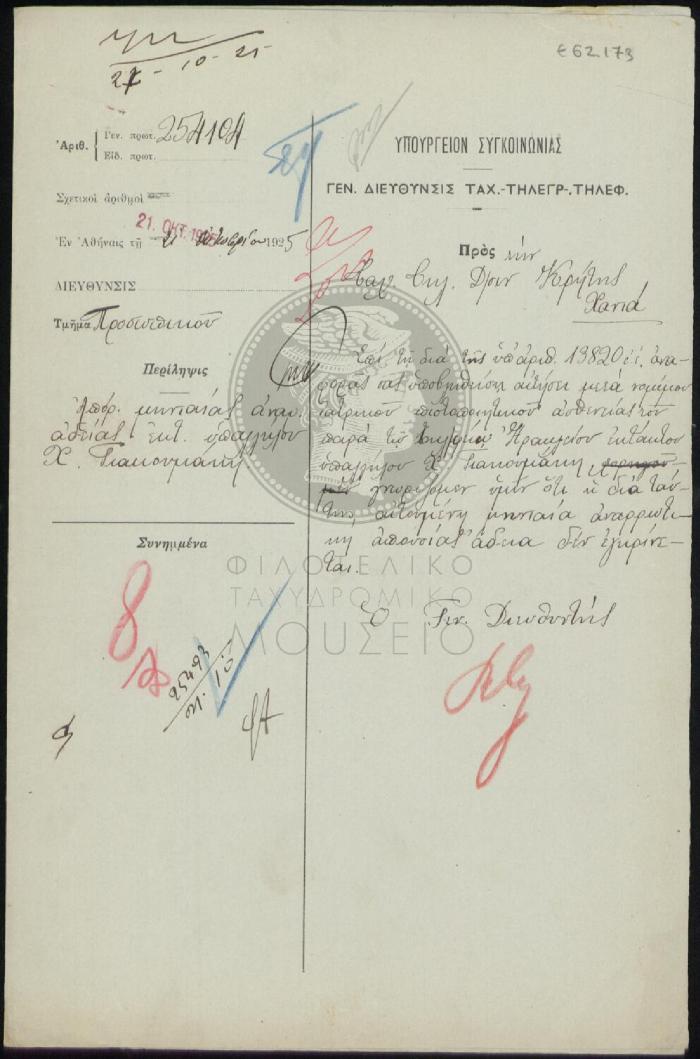 27-10-25
ε62.173
Ἀριθ. Γεν. πρωτ. 254104
Εἰδ. πρωτ.
Σχετικοὶ ἀριθμοὶ
21. ΟΚΤ. 1925
Ἐν Ἀθήναις τῇ 21 Ὀκτωβρίου 1925
ΔΙΕΥΘΥΝΣΙΣ
Τμῆμα Προσωπικοῦ
Περίληψις
Ἀπορ. μηνιαίας ἀναρ.
ἀδείας ἐκτ. ὑπαλλήλου
Χ. Γιακουμάκη
Συνημμένα
25493
21.10
ΥΠΟΥΡΓΕΙΟΝ ΣΥΓΚΟΙΝΩΝΙΑΣ
ΓΕΝ. ΔΙΕΥΘΥΝΣΙΣ ΤΑΧ.-ΤΗΛΕΓΡ-.ΤΗΛΕΦ.
Πρὸς τὴν
Ταχ. Τηλ. Δ)σιν Κρήτης
Χανιά
Ἐπὶ τῇ διὰ τῆς ὑπ' ἀριθ. 13820 ἀνα-
φορᾶς σας ὑποβληθείσῃ αἰτήσει μετὰ νομίμου
ἰατρικοῦ πιστοποιητικοῦ ἀσθενείας τοῦ
παρὰ τῷ Ἡρακλείου ἐκτάκτου
ὑπαλλήλου Χ Γιακουμάκη
γνωρίζομεν ὑμῖν ὅτι ἡ διὰ ταύ-
της αἰτουμένη μηνιαία ἀναρρωτι-
κὴ ἀπουσίας ἄδεια δὲν ἐγκρίνε-
ται.
Ὁ Γεν. Διευθυντής
ΦΙΛΟΤΕΛΙΚΟ
ΤΑΧΥΔΡΟΜΙΚΟ
ΜΟΥΣΕΙΟ